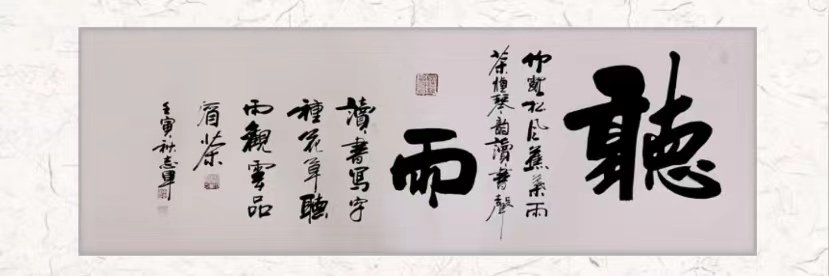 聽
竹松風蕉葉雨
茶煙琴韻讀書聲
雨
讀書寫字
種花草聽
雨觀雲品
茶
壬寅秋志軍